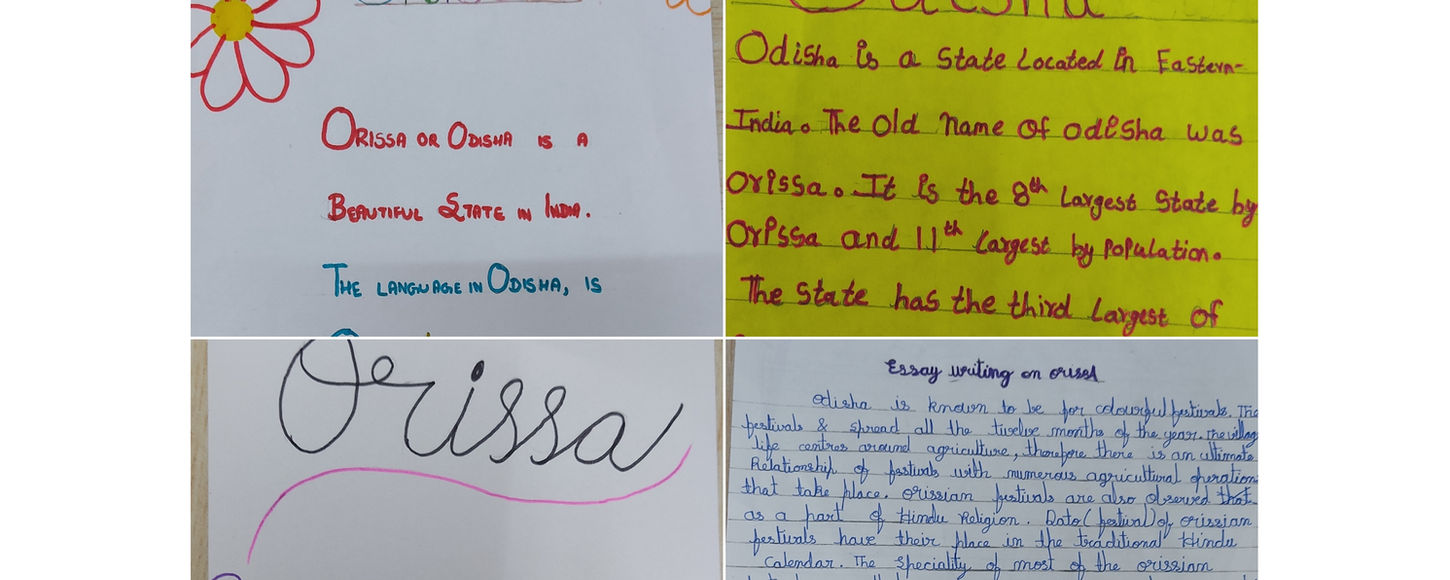 ORISSA OR ODISHA IS A
BEAUTIFUL STATE IN INDIA.
THE LANGUAGE IN ODISHA, IS
Odisha is a State Located in Eastern-
India. The old name of odisha was
Orissa. It is the 8th Largest State by
Orissa and 11th Largest by population.
The state has the third Largest of
Orissa
Essay writing on
Odisha is known to be for colourful festivals. The
festivals & spread all the twelve months of the year. The villag
life centres around agriculture, therefore there is an ultimate
Relationship of festivals with numerous agricultural operation
that take place. Orissian festivals are also observed that
as a part of Hindu Religion. Dato (festival) of orissian
festivals have their place in the traditional Hindu
Calendar. The speciality of most of the orissian